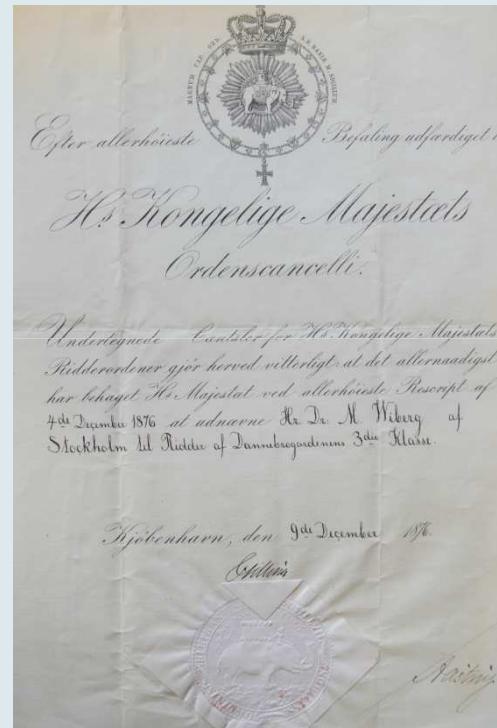 Efter allerhöieste Befaling udfærdiget i
Hs. Kongelige Majestæts
Ordenscancelli.
Undertegnede Cantsler for Hs. Kongelige Majestæts
Ridderordener gjör herved vitterligt: at det allernaadigst
har behaget Hs. Majestæt ved allerhöieste Rescript af
4de December 1876 at udnævne Hr. Dr. M. Wiberg af
Stockholm til Ridder af Dannebrogordenens 3die Klasse.
Kjöbenhavn, den 9de December 1876.